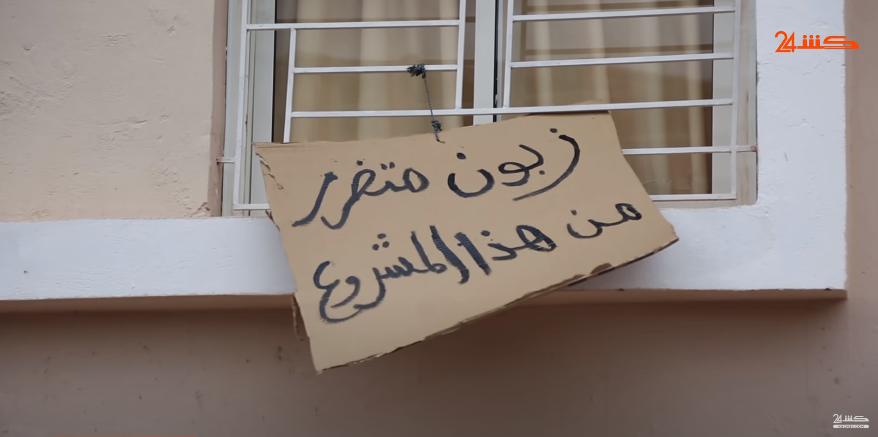 كشـ24
زبون متضرر
من هذا المشروع
كشـ24